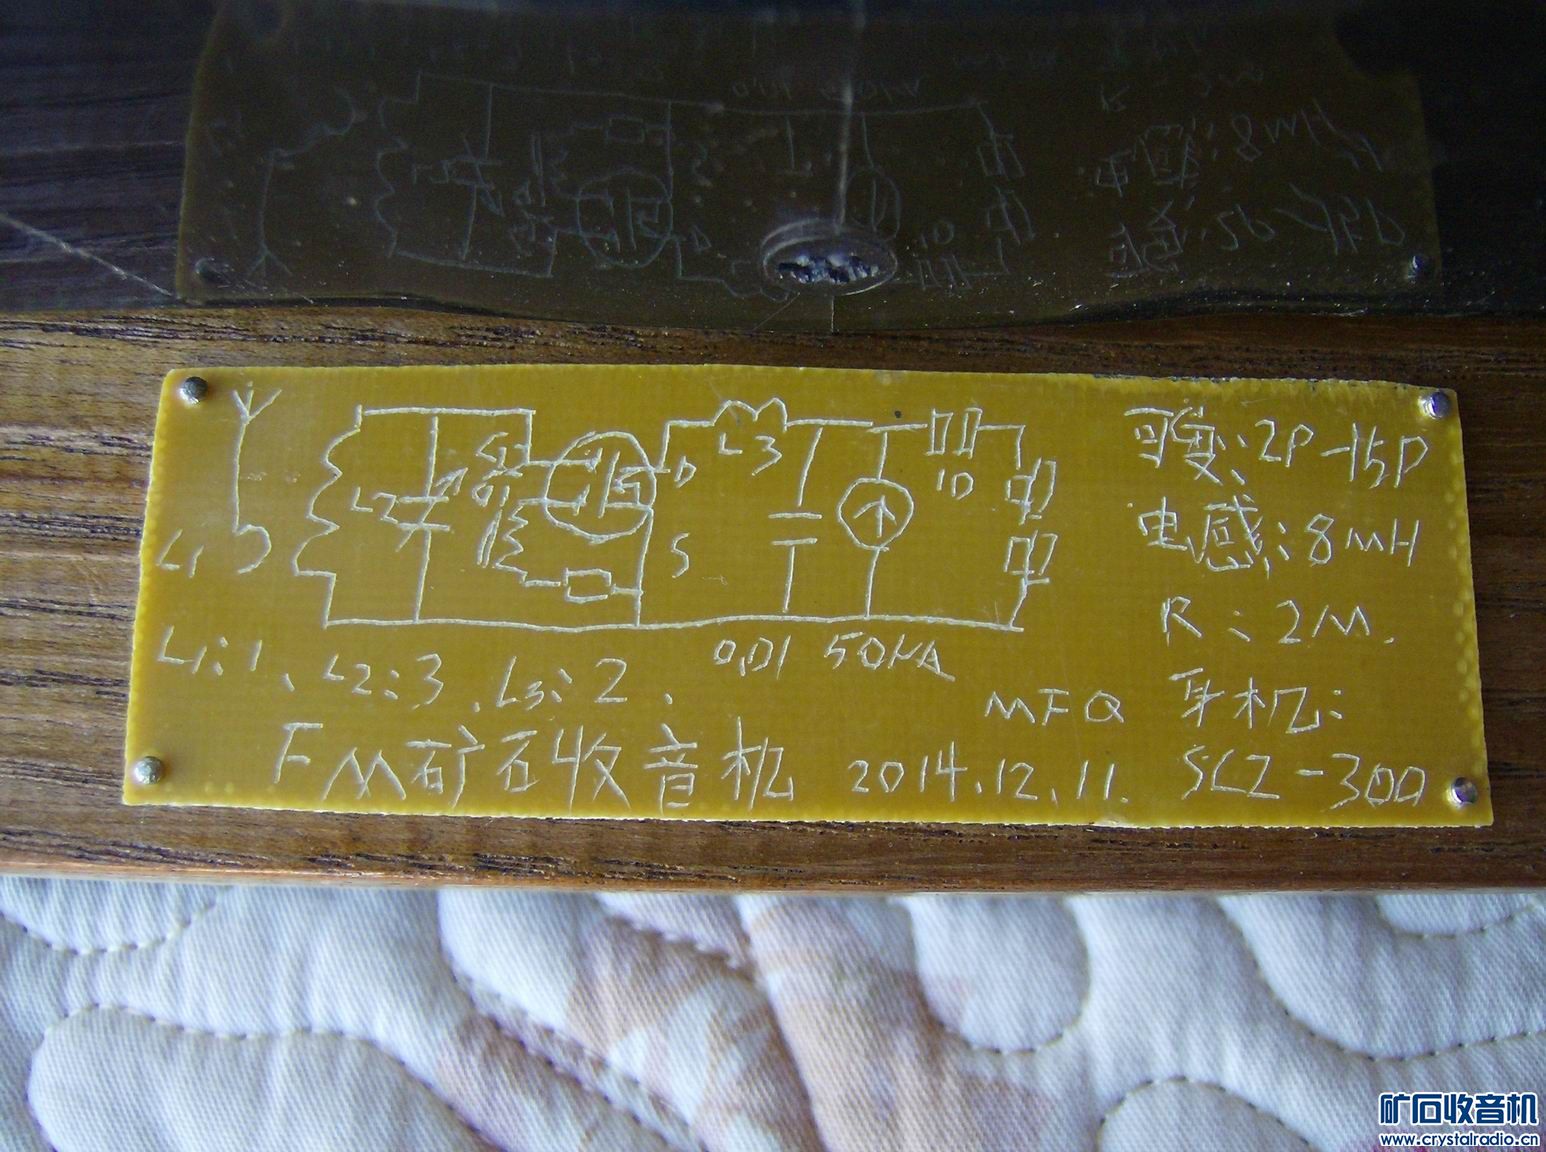 可变: 2P-15P
L2 G2 G1 D L3 10
电感: 8mH
L1 S
R: 2M.
L1:1、L2:3、L3:2、 0,01 50μA
MFQ 耳机:
FM矿石收音机 2014.12.11. SCZ-300
矿石收音机
www.crystalradio.cn